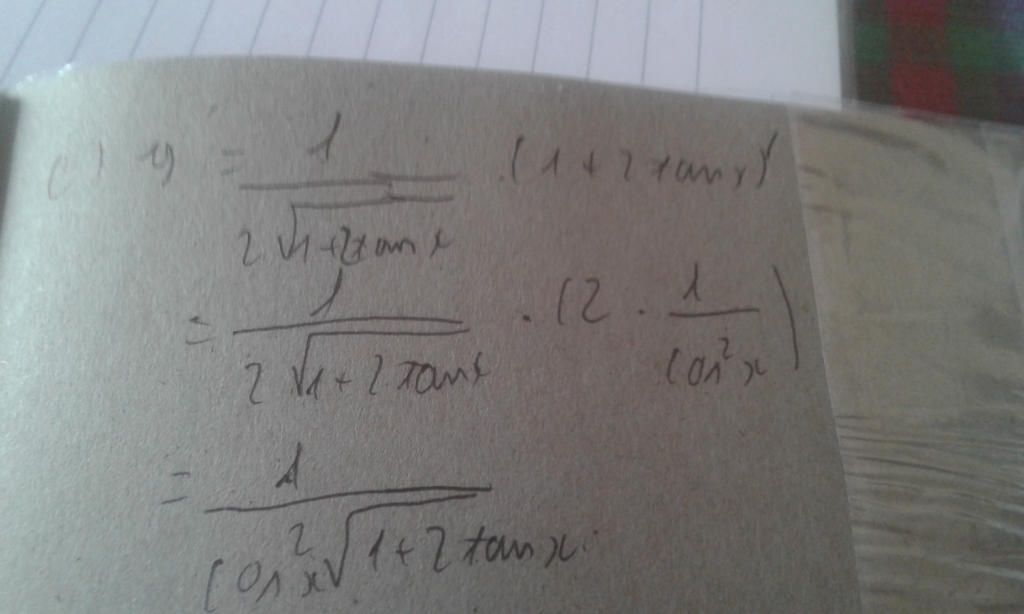 c) y' = 1 / (2√(1+2tan x)) · (1+2tan x)'
= 1 / (2√(1+2tan x)) · (2 · 1 / cos²x)
= 1 / (cos²x √(1+2tan x))